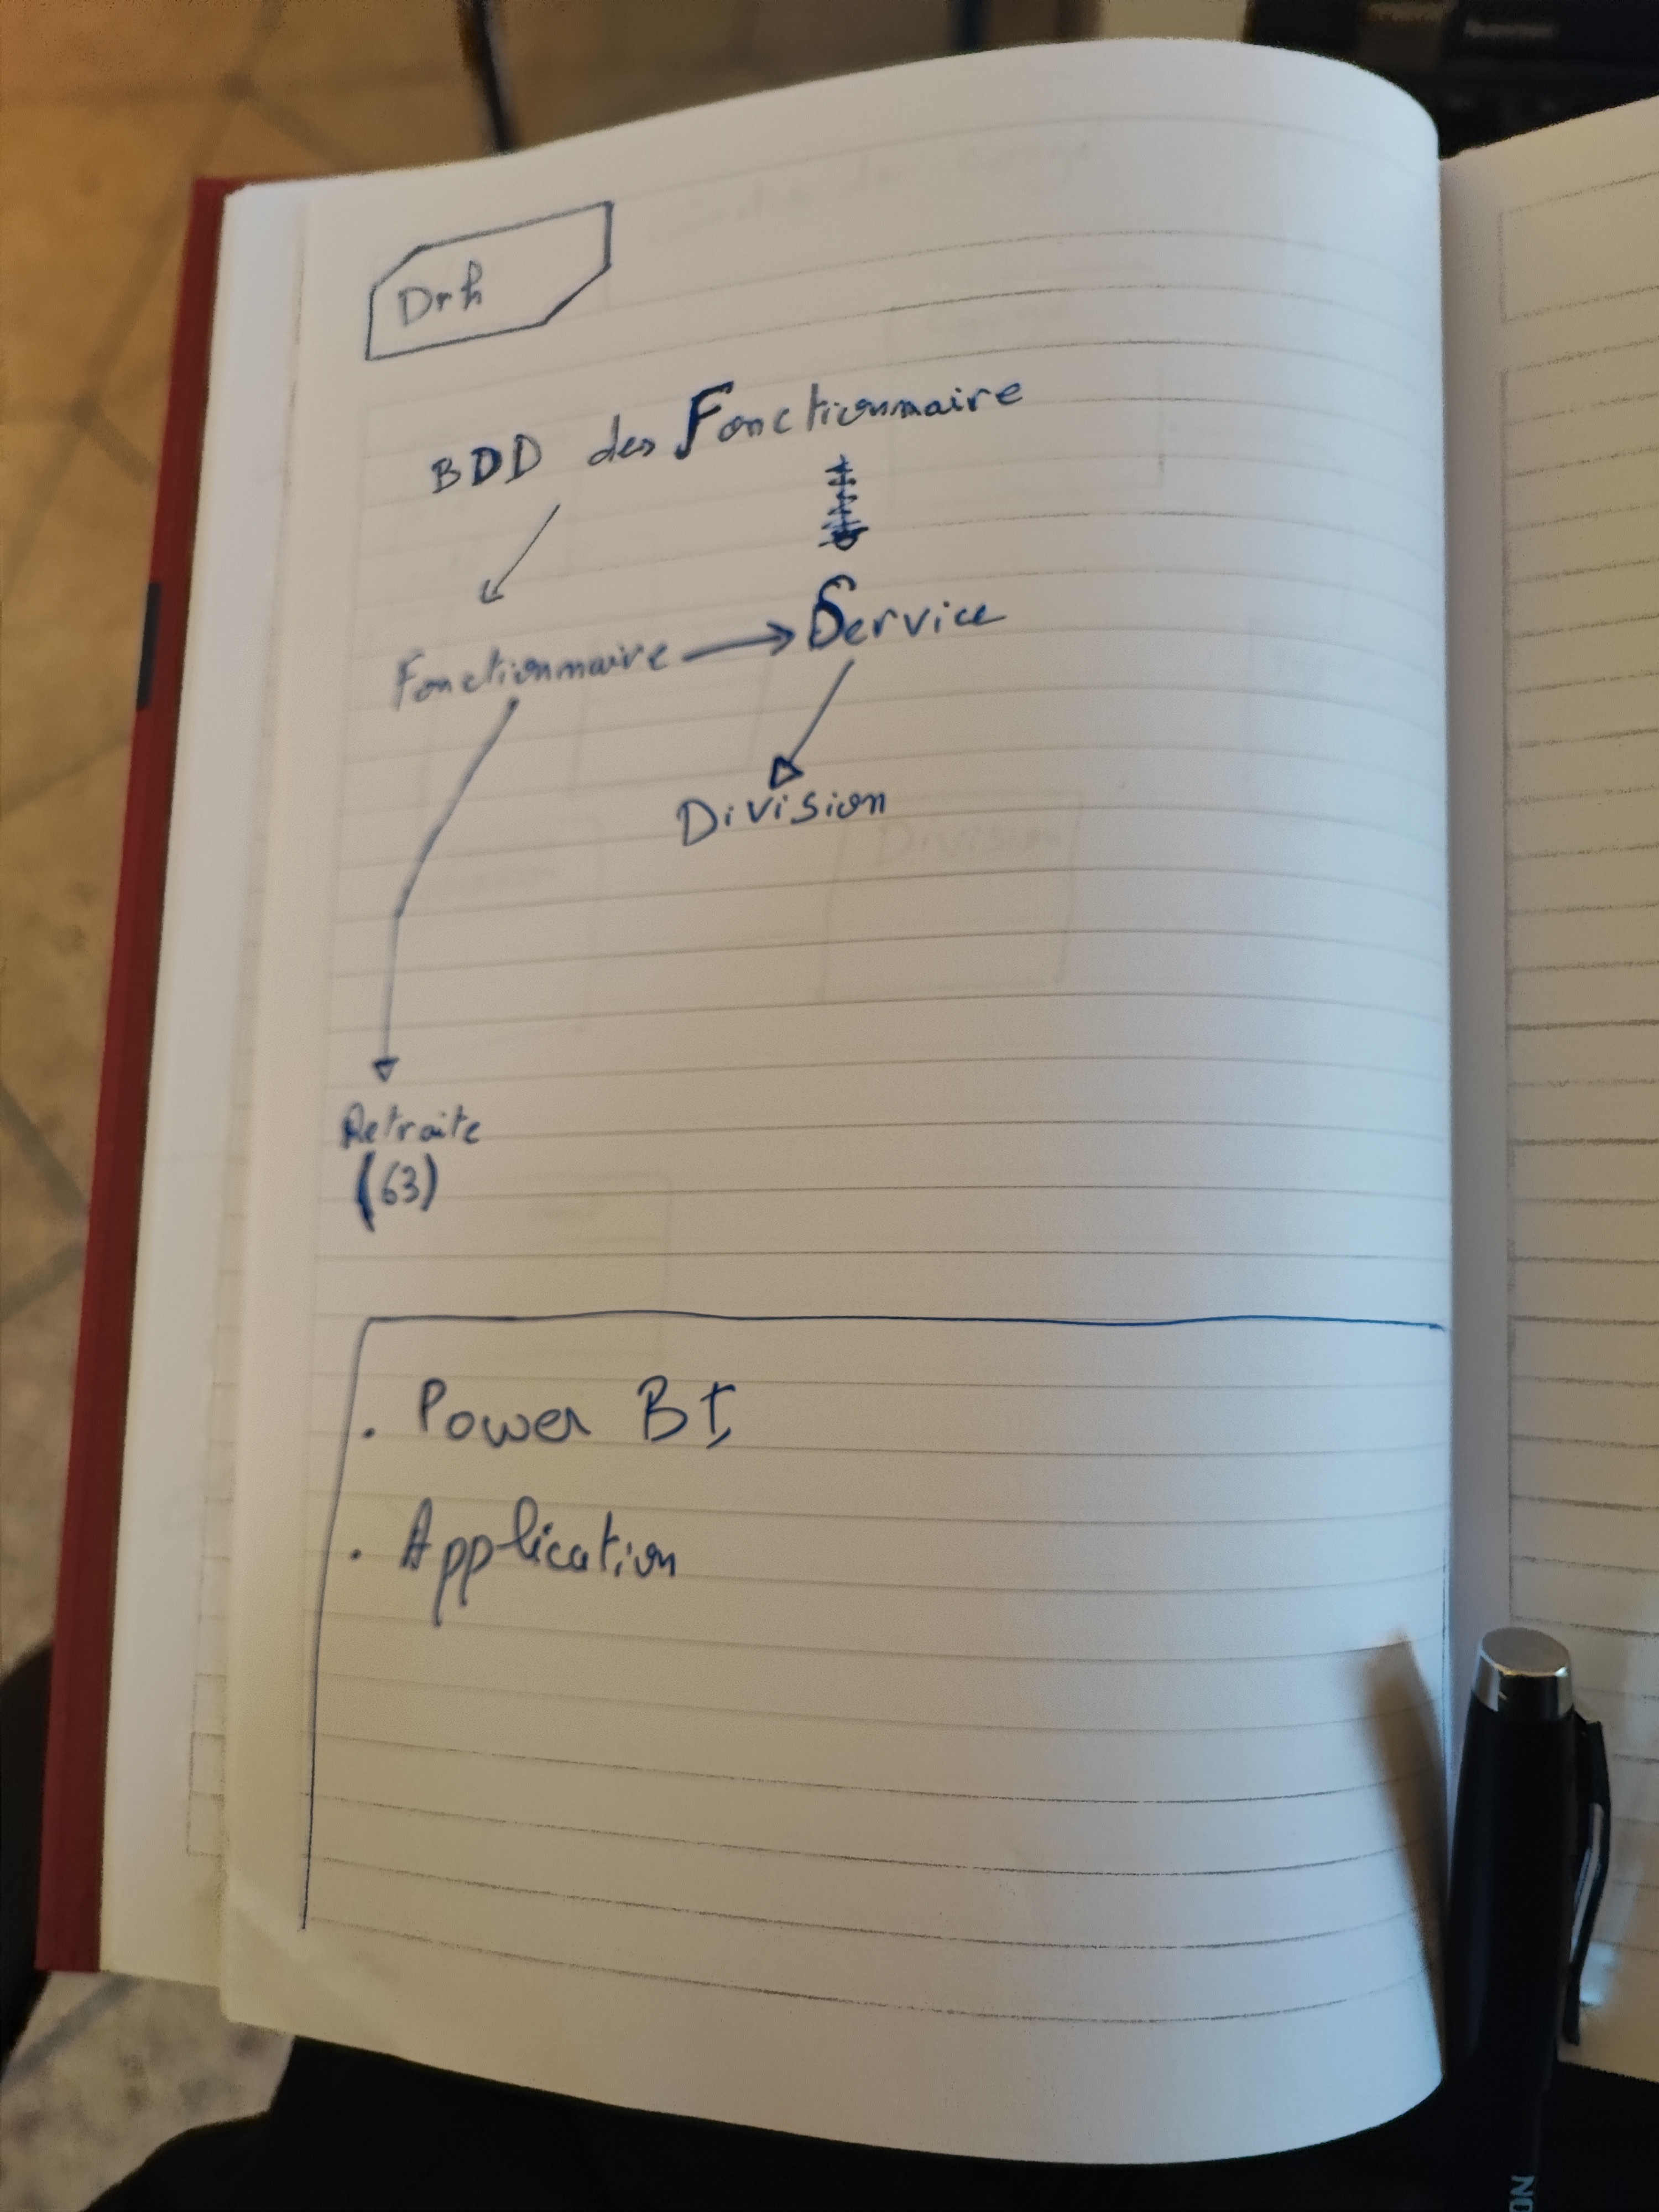 Drh
BDD des Fonctionnaire
Fonctionnaire → Service
Division
Retraite
(63)
. Power BI
. Application